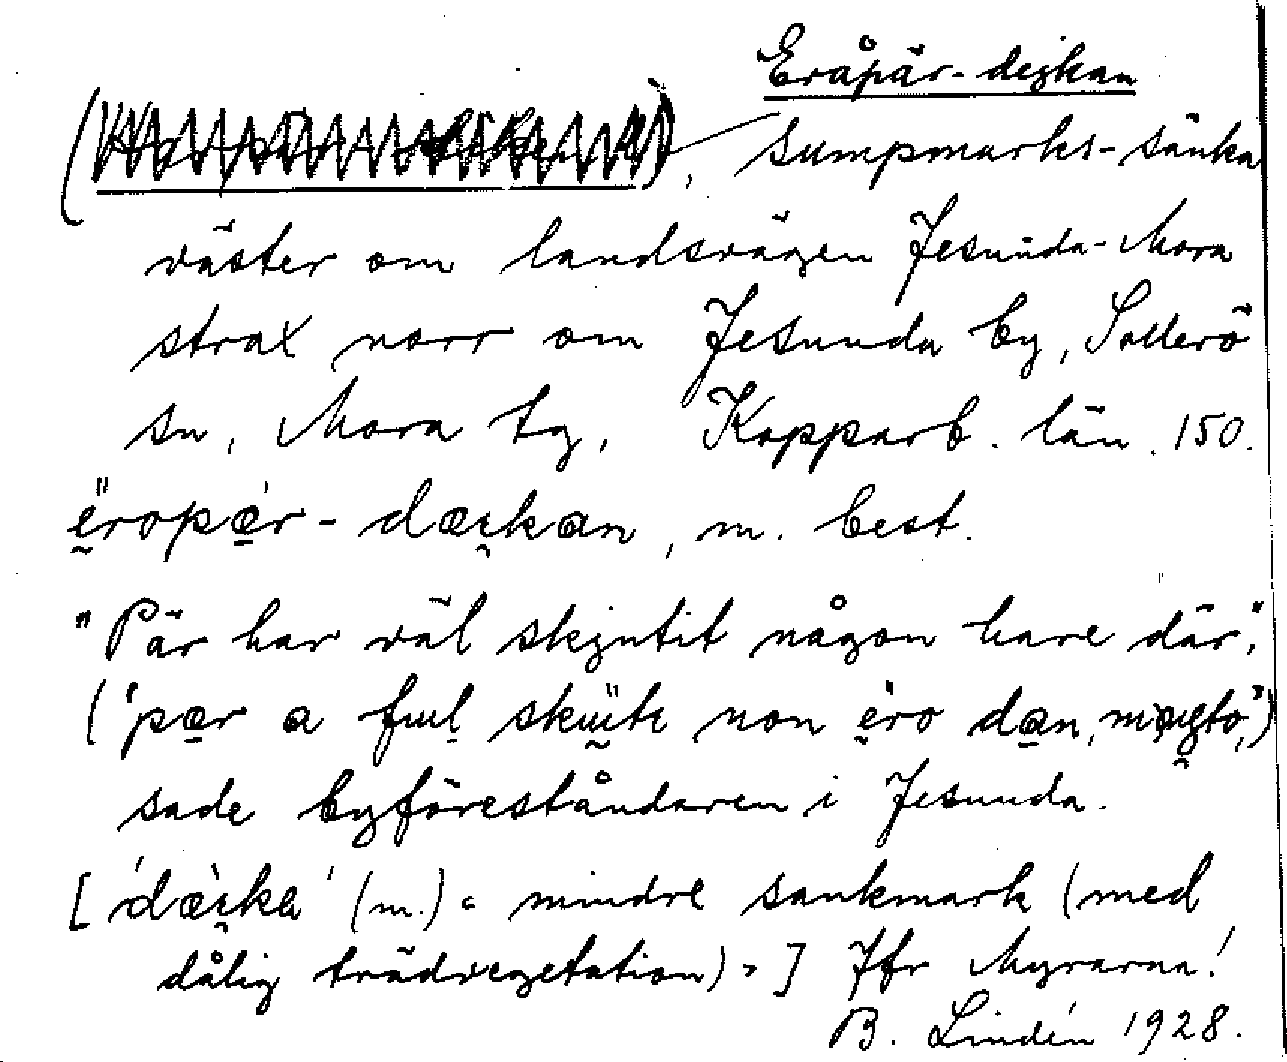 Eråpär-dejkan
sumpmarks-sänka
väster om landsvägen Jesunda-Mora
strax norr om Jesunda by, Sollerö
sn, Mora tg, Kopparb. län. 150.
ḛ̈ropǽr-dæi̯kan, m. best.
"Pär har väl skjutit någon hare där",
('pær a ful skuitε non ero dan,
sade byföreståndaren i Jesunda.
['dæi̯ka' (m.) = mindre sankmark (med
dålig trädvegetation).] Jfr Myrarna!
B. Lindén 1928.